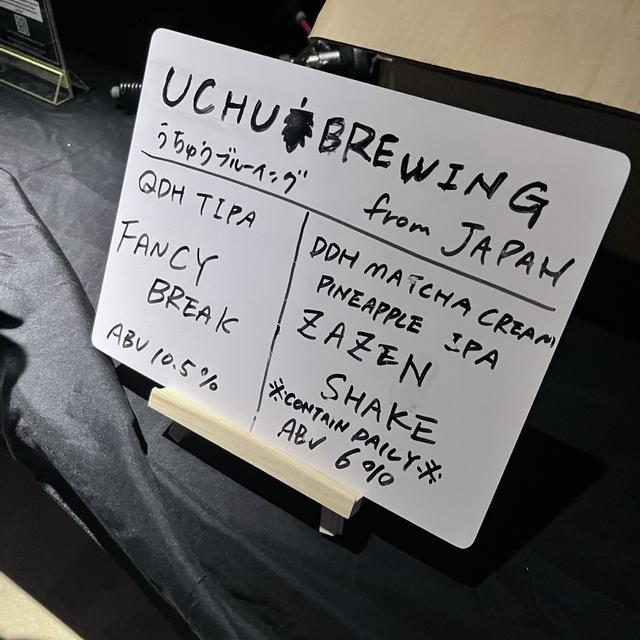 UCHU BREWING
うちゅうブルーイング
from JAPAN
QDH TIPA
FANCY
BREAK
ABV 10.5%
DDH MATCHA CREAM
PINEAPPLE IPA
ZAZEN
SHAKE
※CONTAIN DAILY※
ABV 6%